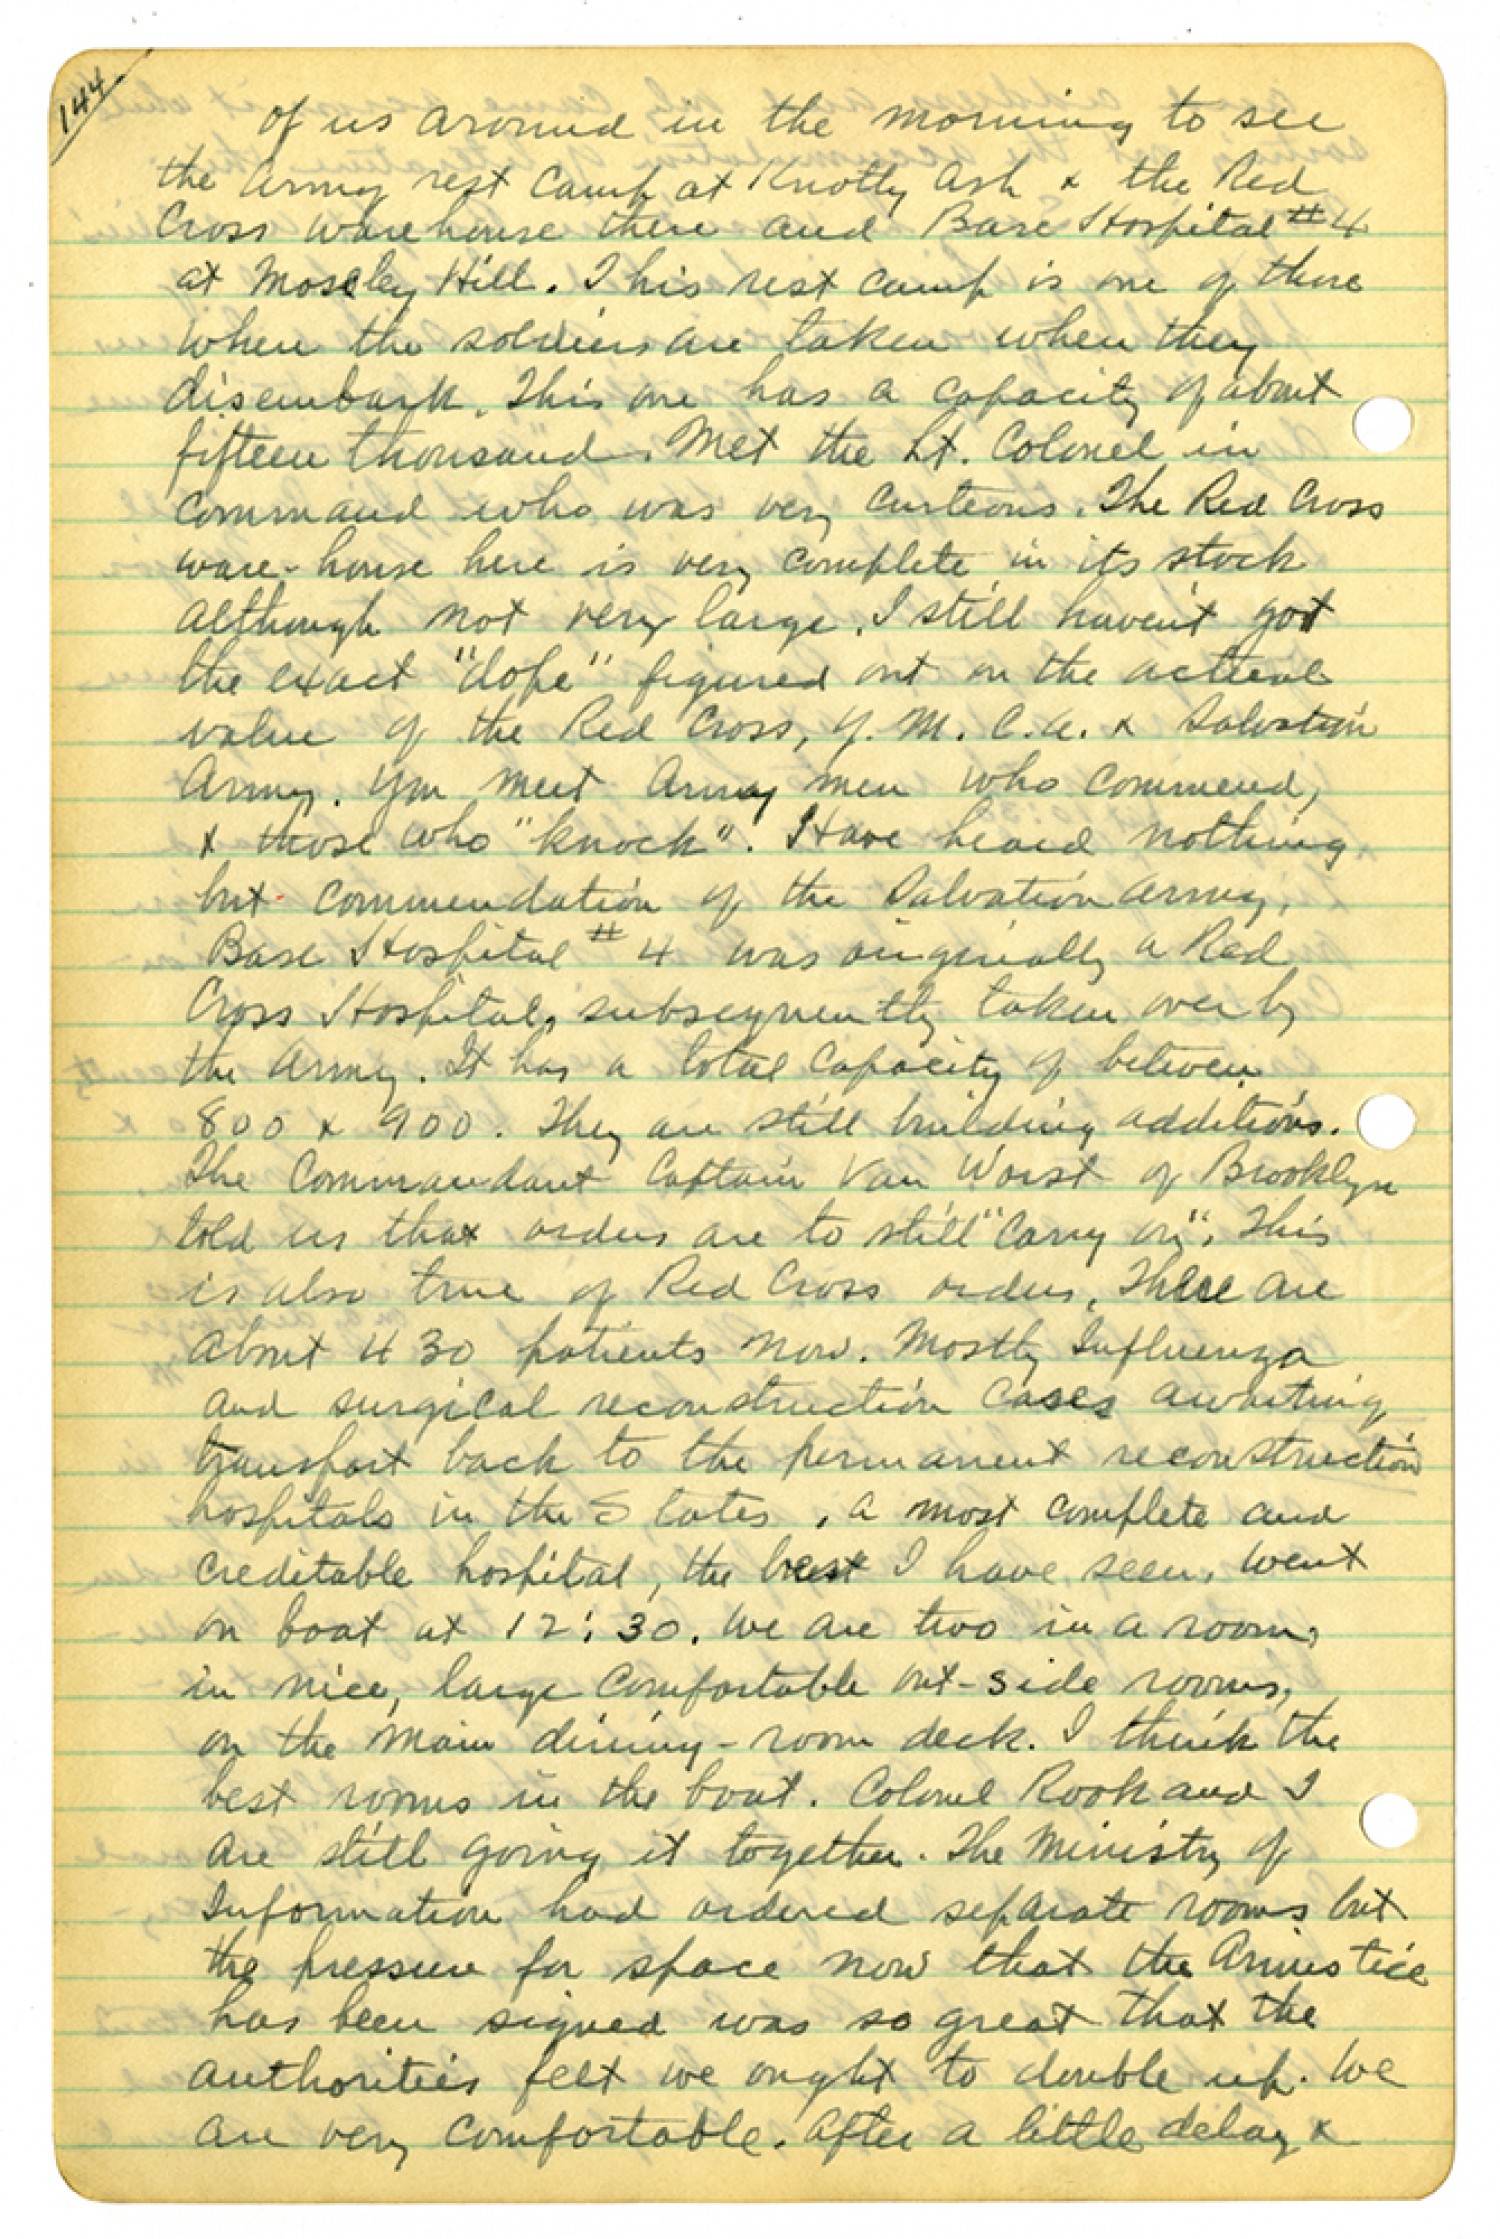 144
of us around in the morning to see
the Army rest camp at Knotty Ash & the Red
Cross warehouse there and Base Hospital #4
at Moseley Hill. This rest camp is one of those
where the soldiers are taken when they
disembark. This one has a capacity of about
fifteen thousand. Met the Lt. Colonel in
command who was very curteous. The Red Cross
ware-house here is very complete in its stock
although not very large. I still haven't got
the exact "dope" figured out on the actual
value of the Red Cross, Y. M. C. A. & Salvation
Army. You meet Army men who commend,
& those who "knock". Have heard nothing
but commendation of the Salvation Army.
Base Hospital #4 was originally a Red
Cross Hospital, subsequently taken over by
the Army. It has a total capacity of between
800 & 900. They are still building additions.
The Commandant Captain Van Worst of Brooklyn
told us that orders are to still "carry on". This
is also true of Red Cross orders. There are
about 430 patients now. Mostly Influenza
and surgical reconstruction cases awaiting
transport back to the permanent reconstruction
hospitals in the States. A most complete and
creditable hospital, the best I have seen. Went
on boat at 12:30. We are two in a room,
in nice, large comfortable out-side rooms,
on the main dining-room deck. I think the
best rooms in the boat. Colonel Rook and I
are still going it together. The Ministry of
Information had ordered separate rooms but
the pressure for space now that the Armistice
has been signed was so great that the
authorities felt we ought to double up. We
are very comfortable. After a little delay &